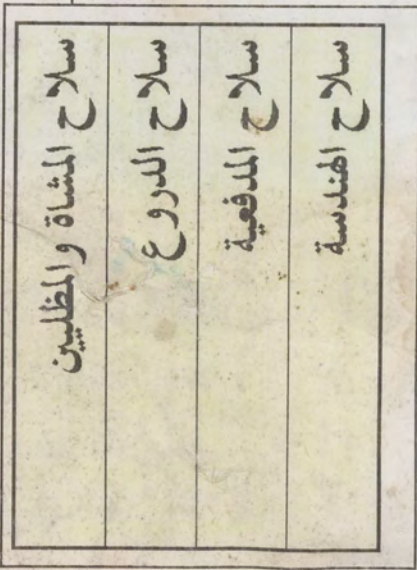 سلاح المشاة والمظليين
سلاح الدروع
سلاح المدفعية
سلاح الهندسة